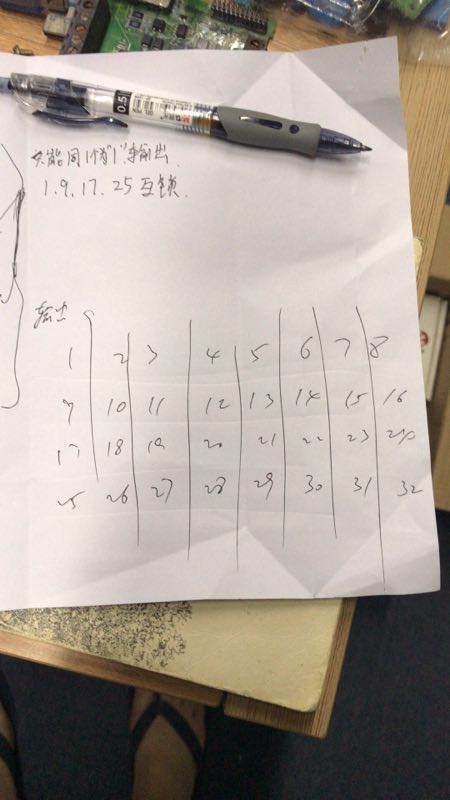 只能同1个为"1"输出
1.9.17.25互锁
输出
1 2 3 4 5 6 7 8
9 10 11 12 13 14 15 16
17 18 19 20 21 22 23 24
25 26 27 28 29 30 31 32
0.5